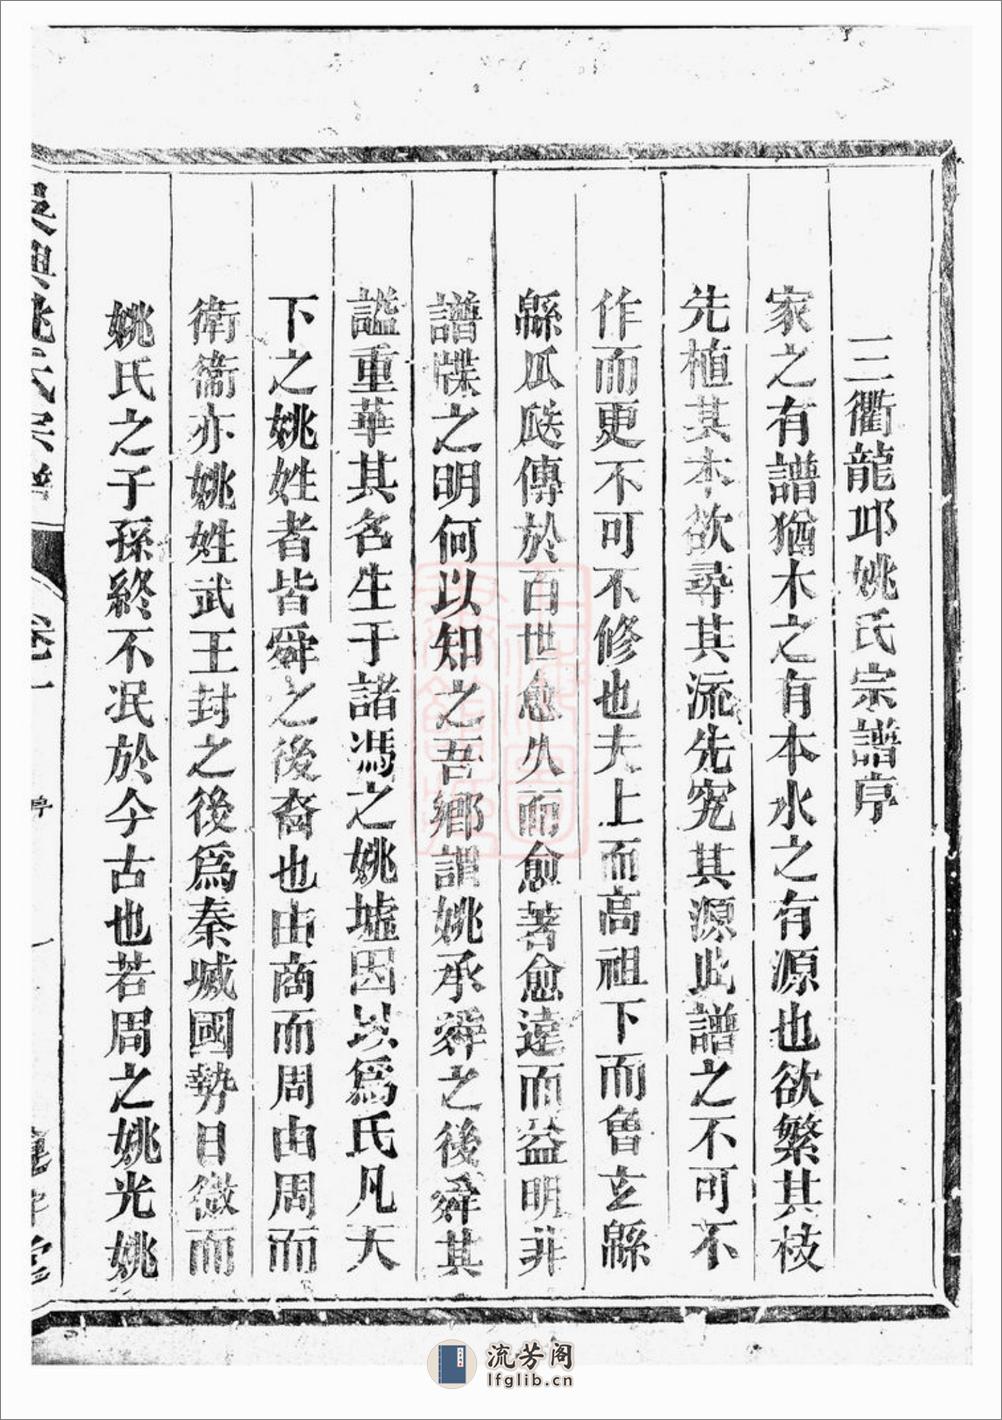 三衢龍邱姚氏宗譜序
家之有譜猶木之有本水之有源也欲繁其枝
先植其本欲尋其流先究其源此譜之不可不
作而更不可不修也夫上而高祖下而曾玄緜
緜瓜瓞傳於百世愈久而愈著愈遠而益明非
譜牒之明何以知之吾鄉謂姚承舜之後舜其
諡重華其名生于諸馮之姚墟因以爲氏凡天
下之姚姓者皆舜之後裔也由商而周由周而
衛衞亦姚姓武王封之後爲秦滅國勢日微而
姚氏之子孫終不泯於今古也若周之姚光姚
吳興姚氏宗譜
卷一
序
一
流芳阁
lfglib.cn